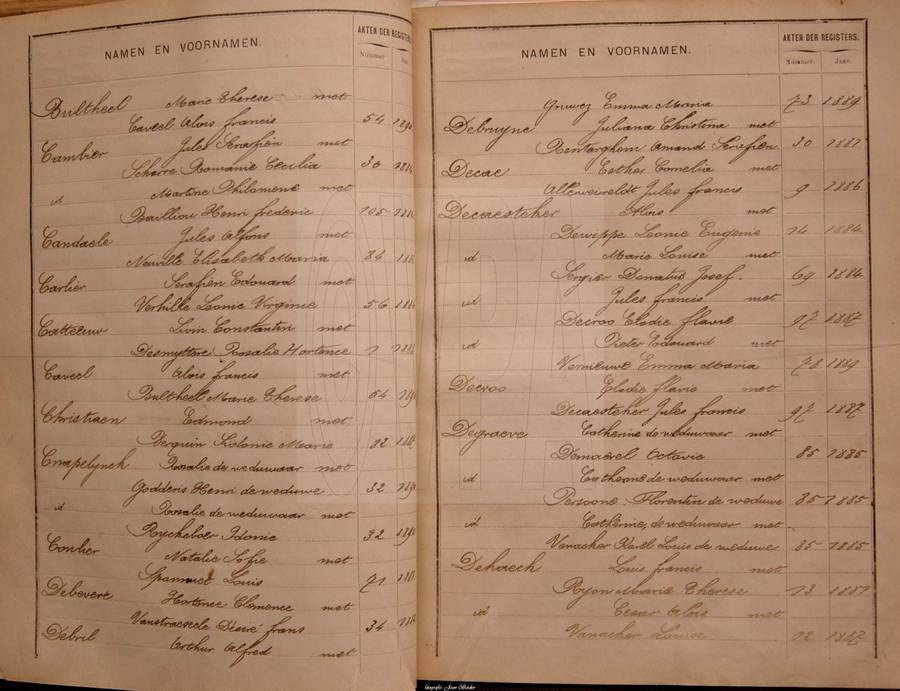 NAMEN EN VOORNAMEN. AKTEN DER REGISTERS.
Nummer
Bultheel Marie Therese met
Caveel Alois francis 54
Cambier Jules Serafien met
Scherre Romanie Cecilia 30
id Martine Philomene met
Bailliou Henri frederic 105
Candaele Jules Alfons met
Neuville Elisabeth Maria 84
Carlier Serafien Edouard met
Verhille Leonie Virginie 56
Catteeuw Livin Constantin met
Desmyttere Rosalie Hortence
Caveel Alois francis met
Bultheel Marie Therese
Christiaen Edmond met
Sidonie Marie 82
Cnapelynck Rosalie de weduwaar met
Godderis Henri de weduwe 32
id Rosalie de weduwaar met
Ryckeboer Idonie 32
Coulier Natalie Sofie met
Louis 71
Debevere Hortence Clemence met
Vanstraeseele Désiré frans 34
Debril Arthur Alfred met
NAMEN EN VOORNAMEN. AKTEN DER REGISTERS.
Nummer. Jaar.
Gruwez Emma Maria 73 1889
Debruyne Juliana Christina met
Amand Serafien 30 1881
Decae Esther Cornelia met
Alleweireldt Jules francis 9 1886
Decaesteker Alois met
Dewippe Leonie Eugenie 1884
id Marie Louise met
Sergier Donatus Josef. 69 1884
id Jules francis met
Decroo Elodie flavie 97 1887
id Pieter Edouard met
Vernieuwe Emma Maria 78 1889
Decroo Elodie flavie met
Decaesteker Jules francis 97 1887
Degraeve Catherine de weduwaar met
Demaerel Octavie 85 1885
id Catherine de weduwaar met
Persoone Florentin de weduwe 85 1885
id Catherine, de weduwaar met
Vanacker Karel Louis de weduwe 85 1885
Dehaeck Louis francis met
Ryon Marie Therese 13 1881
id Cesar Alois met
Vanacker Louise 12 1887